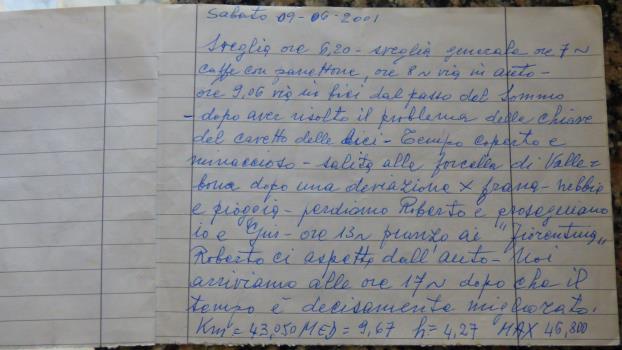 Sabato 09-06-2001
Sveglia ore 6,20 - sveglia generale ore 7 ~
caffe con panettone, ore 8 ~ via in auto -
ore 9,06 via in bici dal passo del Sommo
- dopo aver risolto il problema della chiave
del cavetto delle bici - Tempo coperto e
minaccioso - salita alla forcella di Valle=
bona dopo una deviazione x frana - nebbia
e pioggia - perdiamo Roberto e proseguiamo
io e - ore 13 ~ pranzo ai "Fiorentini"
Roberto ci aspetta dall'auto - Noi
arriviamo alle ore 17 ~ dopo che il
tempo è decisamente migliorato.
Km = 43,050 MED = 9,67 h = 4,27 MAX 46,800